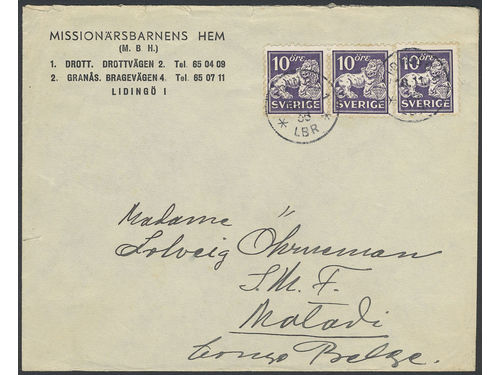 MISSIONÄRSBARNENS HEM
(M. B. H.)
1. DROTT. DROTTVÄGEN 2. Tel. 65 04 09
2. GRANÅS. BRAGEVÄGEN 4. Tel. 65 07 11
LIDINGÖ 1
10 ÖRE 10 ÖRE 10 ÖRE
SVERIGE SVERIGE SVERIGE
LBR
Madame
Solveig Öhrneman
S. M. F.
Matadi
Congo Belge.